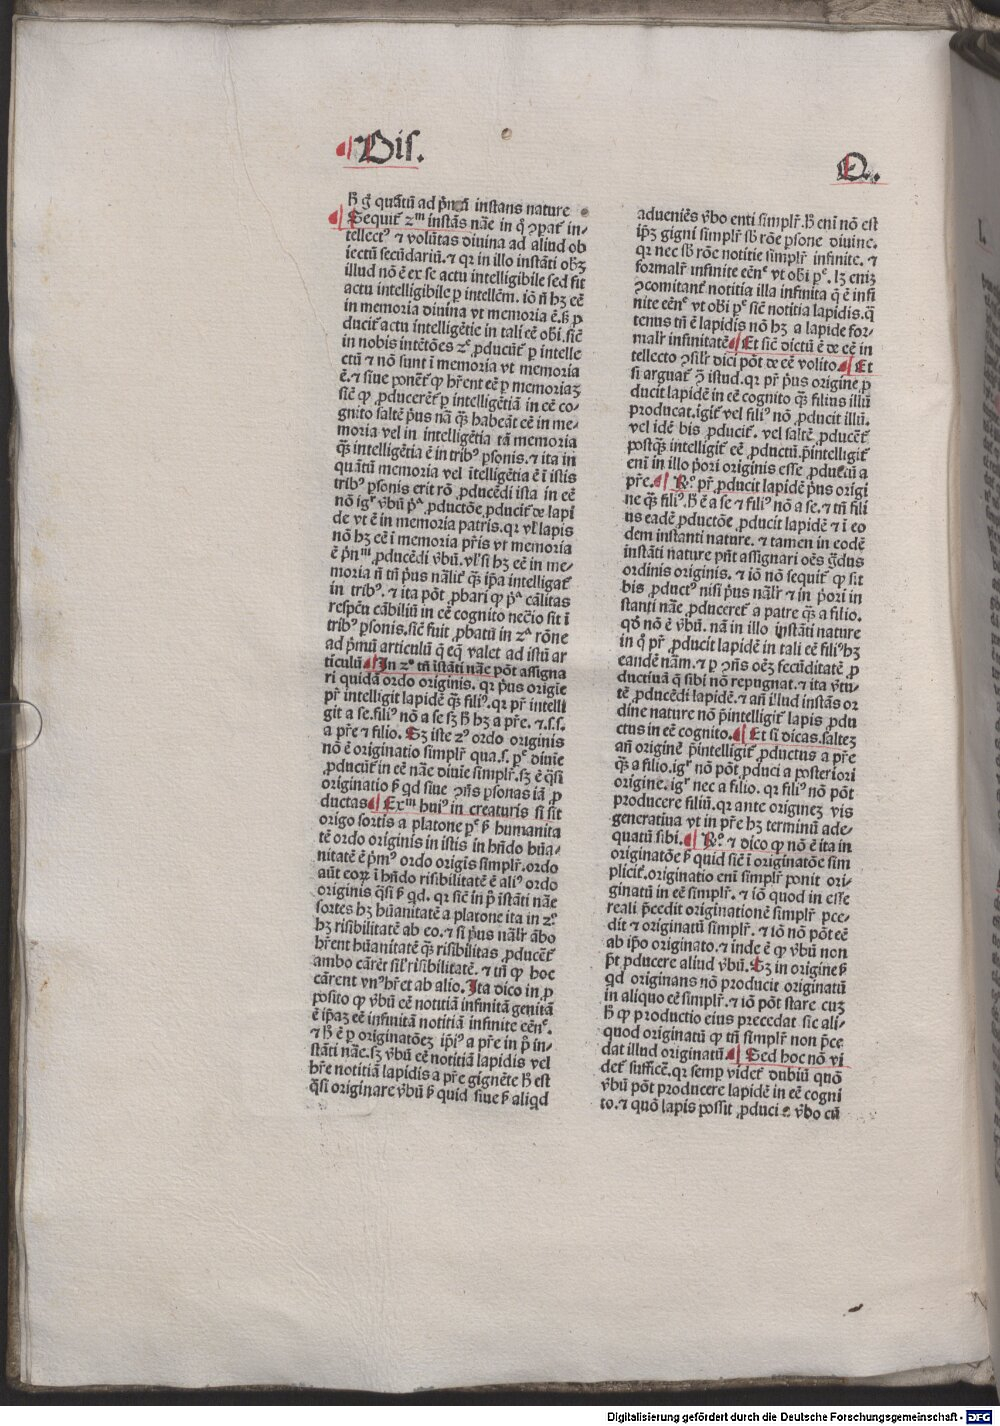 Dis.
Q.
ħ g̊ quātū ad p̄mū instans nature
Sequit̃ 2ᵐ instās nāe in q̊ ꝯparat̃ in-
tellect⁹ ⁊ volūtas diuina ad aliud ob
iectū secūdariū.⁊ qꝛ in illo instāti obꝫ
illud nō ē ex se actu intelligibile sed fit
actu intelligibile ꝑ intellēm. iō n̄ hꝫ eē
in memoria diuina vt memoria ē.s̄ ꝓ
ducit̃ actu intelligētie in tali eē obi.sic̄
in nobis intētōes 2ᵉ ꝓducūt̃ ꝑ intelle
ctū ⁊ nō sunt ī memoria vt memoria
ē.⁊ siue ponēt̃ ꝙ hr̄ent eē ꝑ memoriaꝫ
sic̄ ꝙ ꝓducerēt̃ ꝑ intelligētiā in eē co-
gnito saltē pꝰus nā̄ q̄ꝫ habeāt eē in me-
moria vel in intelligētia tā memoria
q̄ꝫ intelligētia ē in trib⁹ ꝑsonis.⁊ ita in
quātū memoria vel ītelligētia ē ī istis
trib⁹ ꝑsonis erit rō ꝓducēdi ista in eē
nō igᵗ v̄bū pᵃ ꝓductōe ꝓducit̃ de lapi
de vt ē in memoria patris.qꝛ vl̄ lapis
nō hꝫ eē ī memoria pr̄is vt memoria
ē p̄nᵐ ꝓducēdi v̄bū.vl̄ si hꝫ eē in me-
moria n̄ tn̄ pꝰus nāliꝰ q̄ꝫ ip̄a intelligat̃
in trib⁹.⁊ ita pōt ꝓbari ꝙ pᵃ cālitas
respcū cābiliū in eē cognito nec̄io sit ī
trib⁹ ꝑsonis.sic̄ fuit ꝓbatū in 2ᵃ rōne
ad p̄mū articulū q̄ eq̄ valet ad istū ar
ticulū In 2ᵒ tn̄ īstāti nāe pōt assigna
ri quidā ordo originis. qꝛ pꝰus origīe
pr̄ intelligit lapidē q̄ꝫ fili⁹.qꝛ pr̄ intelli
git a se.fili⁹ nō a se sꝫ ħ hꝫ a pr̄e. ⁊.s.s.
a pr̄e ⁊ filio. Sꝫ iste 2⁹ ordo originis
nō ē originatio simplr̄ qua.s. pᵉ diuīe
ꝓducūt̃ in eē nāe diuīe simplr̄.sꝫ ē q̄si
originatio s̄ qd siue ꝯn̄s ꝑsonas iā ꝓ
ductas Exᵐ hui⁹ in creaturis si sit
origo sortis a platone pᵉ s̄ humanita
tē ordo originis in istis in hn̄do hūa-
nitatē ē p̄m⁹ ordo origīs simplr̄.ordo
aūt eoꝝ ī hn̄do risibilitatē ē ali⁹ ordo
originis q̄si s̄ qd. qꝛ sic̄ in pᵒ īstāti nāe
sortes hꝫ hūanitatē a platone ita in 2ᵒ
hꝫ risibilitatē ab eo.⁊ si pꝰus nālr̄ ābo
hr̄ent hūanitatē q̄ꝫ risibilitas ꝓducēt̃
ambo cārēt sil̄ risibilitatē. ⁊ tn̄ ꝙ hoc
cārent vn⁹ hr̄et ab alio. Ita dico in ꝓ
posito ꝙ v̄bū eē notitiā infinitā genitā
ē ip̄aꝫ eē infinitā notitiā infinite eēn̄ᵉ.
⁊ ħ ē ꝑ originatōeꝫ ip̄i⁹ a pr̄e in pᵒ in-
stāti nāe.sꝫ v̄bū eē notitiā lapidis vel
hr̄e notitiā lapidis a pr̄e gignēte ħ est
q̄si originare v̄bū s̄ quid siue s̄ aliqd
adueniēs v̄bo enti simplr̄. ħ eni nō est
ip̄ꝫ gigni simplr̄ sꝫ rōe ꝑsone diuine.
qꝛ nec sꝫ rōe notitie simplr̄ infinite. ⁊
formalr̄ infinite eēn̄ᵉ vt obi pᵉ. lꝫ eniꝫ
ꝯcomitant̃ notitia illa infinita q̄ ē infi
nite eēn̄ᵉ vt obi pᵉ sic̄ notitia lapidis.q̄
tenus tn̄ ē lapidis nō hꝫ a lapide for-
malr̄ infinitatē Et sic̄ dictū ē de eē in
tellecto ꝯsilr̄ dici pōt de eē volito. Et
si arguat̃ ꝯ̄ istud.qꝛ pr̄ pꝰus origine ꝓ
ducit lapidē in eē cognito q̄ꝫ filius illū
producat.igit̃ vel fili⁹ nō ꝓducit illū.
vel idē bis ꝓducit̃. vel saltē ꝓducēt̃
postq̄ꝫ intelligit̃ eē ꝓductū.p̄intelligit̃
eni in illo pꝰori originis esse ꝓductū a
pr̄e. Rᵒ. pr̄ ꝓducit lapidē pꝰus origi
ne q̄ꝫ fili⁹.ħ ē a se ⁊ fili⁹ nō a se.⁊ tn̄ fili
us eadē ꝓductōe ꝓducit lapidē ⁊ ī eo
dem instanti nature. ⁊ tamen in eodē
instāti nature pn̄t assignari oēs g̊dus
ordinis originis. ⁊ iō nō sequit̃ ꝙ sit
bis ꝓduct⁹ nisi pꝰus nālr̄ ⁊ in pꝰori in
stanti nāe ꝓduceret̃ a patre q̄ꝫ a filio.
qd̄ nō ē v̄bū. nā in illo instāti nature
in q̊ pr̄ ꝓducit lapidē in tali eē fili⁹ hꝫ
eandē nām.⁊ ꝑ ꝯn̄s oēꝫ fecūditatē ꝓ
ductiuā q̄ sibi nō repugnat.⁊ ita v̄tu-
tē ꝓducēdi lapidē.⁊ an̄ illud instās or
dine nature nō p̄intelligit̃ lapis ꝓdu
ctus in eē cognito. Et si dicas.salteꝫ
an̄ originē p̄intelligit̃ ꝓductus a pr̄e
q̄ꝫ a filio.igᵗ nō pōt ꝓduci a posteriori
origine.igᵗ nec a filio. qꝛ fili⁹ nō pōt
producere filiū.qꝛ ante origineꝫ vis
generatiua vt in pr̄e hꝫ terminū ade-
quatū sibi. Rᵒ. ⁊ dico ꝙ nō ē ita in
originatōe s̄ quid sic̄ ī originatōe sim
plicit̃.originatio eni simplr̄ ponit ori-
ginatū in eē simplr̄. ⁊ iō quod in esse
reali p̄cedit originationē simplr̄ pce-
dit ⁊ originatū simplr̄. ⁊ iō nō pōt eē
ab ip̄o originato.⁊ inde ē ꝙ v̄bū non
pōt ꝓducere aliud v̄bū. Sꝫ in origine s̄
qd originans nō producit originatū
in aliquo eē simplr̄.⁊ iō pōt stare cuꝫ
ħ ꝙ productio eius precedat sic ali-
quod originatū ꝙ tn̄ simplr̄ non p̄ce
dat illud originatū. Sed hoc nō vi
det̃ sufficē.qꝛ semꝑ videt̃ dubiū quō
v̄bū pōt producere lapidē in eē cogni
to.⁊ quō lapis possit ꝓduci a v̄bo cū
Digitalisierung gefördert durch die Deutsche Forschungsgemeinschaft - DFG